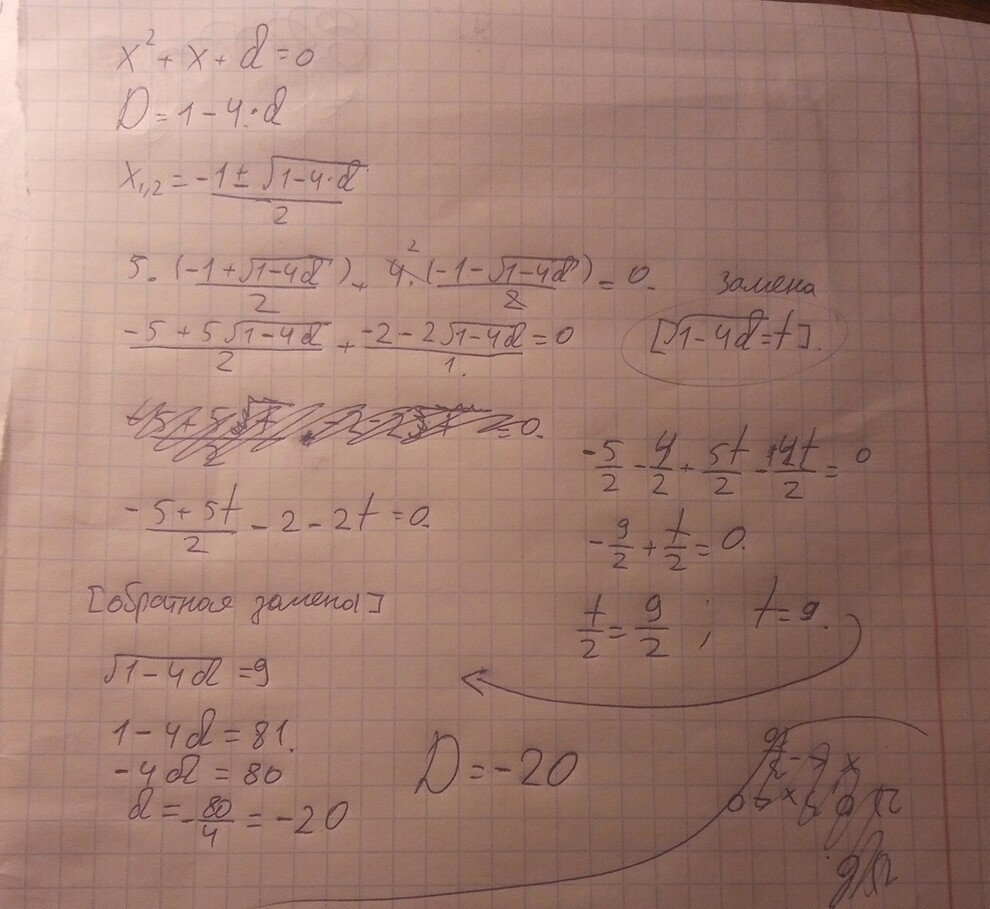 x² + x + d = 0
D = 1 - 4·d
x₁,₂ = (-1 ± √(1-4·d))/2
5·(-1+√(1-4d))/2 + 4·(-1-√(1-4d))/2 = 0. 2
Замена
(-5+5√(1-4d))/2 + (-2-2√(1-4d))/1. = 0
[√(1-4d)=t].
= 0.
-5/2 - 4/2 + 5t/2 - 4t/2 = 0
(-5+5t)/2 - 2 - 2t = 0.
-9/2 + t/2 = 0.
[обратная замена]
t/2 = 9/2 ; t = 9.
√(1-4d) = 9
1-4d = 81.
-4d = 80
D = -20
d = -80/4 = -20